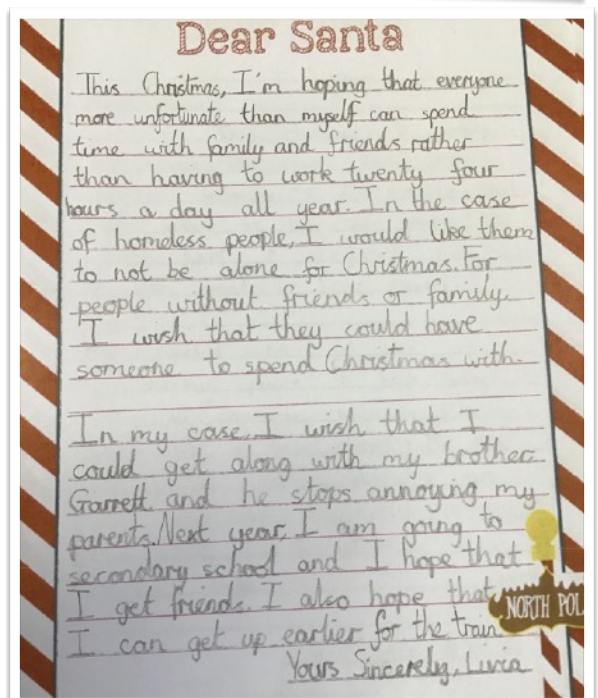 Dear Santa
This Christmas, I'm hoping that everyone
more unfortunate than myself can spend
time with family and friends rather
than having to work twenty four
hours a day all year. In the case
of homeless people, I would like them
to not be alone for Christmas. For
people without friends or family.
I wish that they could have
someone to spend Christmas with.
In my case, I wish that I
could get along with my brother
Garrett and he stops annoying my
parents. Next year, I am going to
secondary school and I hope that
I get friends. I also hope that
I can get up earlier for the train.
Yours Sincerely, Livia
NORTH POL